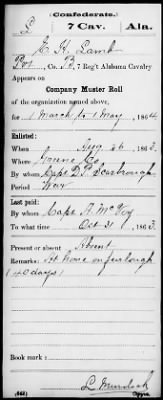 (Confederate.)
L 7 Cav. Ala.
E. H. Lamb
Pvt, Co. B, 7 Reg't Alabama Cavalry
Appears on
Company Muster Roll
of the organization named above,
for 1 March to 1 May, 1864
Enlisted:
When Aug 26, 1863
Where Greene Co
By whom Capt D. P. Scarbrough
Period War
Last paid:
By whom Capt A. McVoy
To what time Oct 31, 1863
Present or absent Absent
Remarks: At home on furlough
(40 days)
Book mark:
L. Murdock
(642) Copyist.